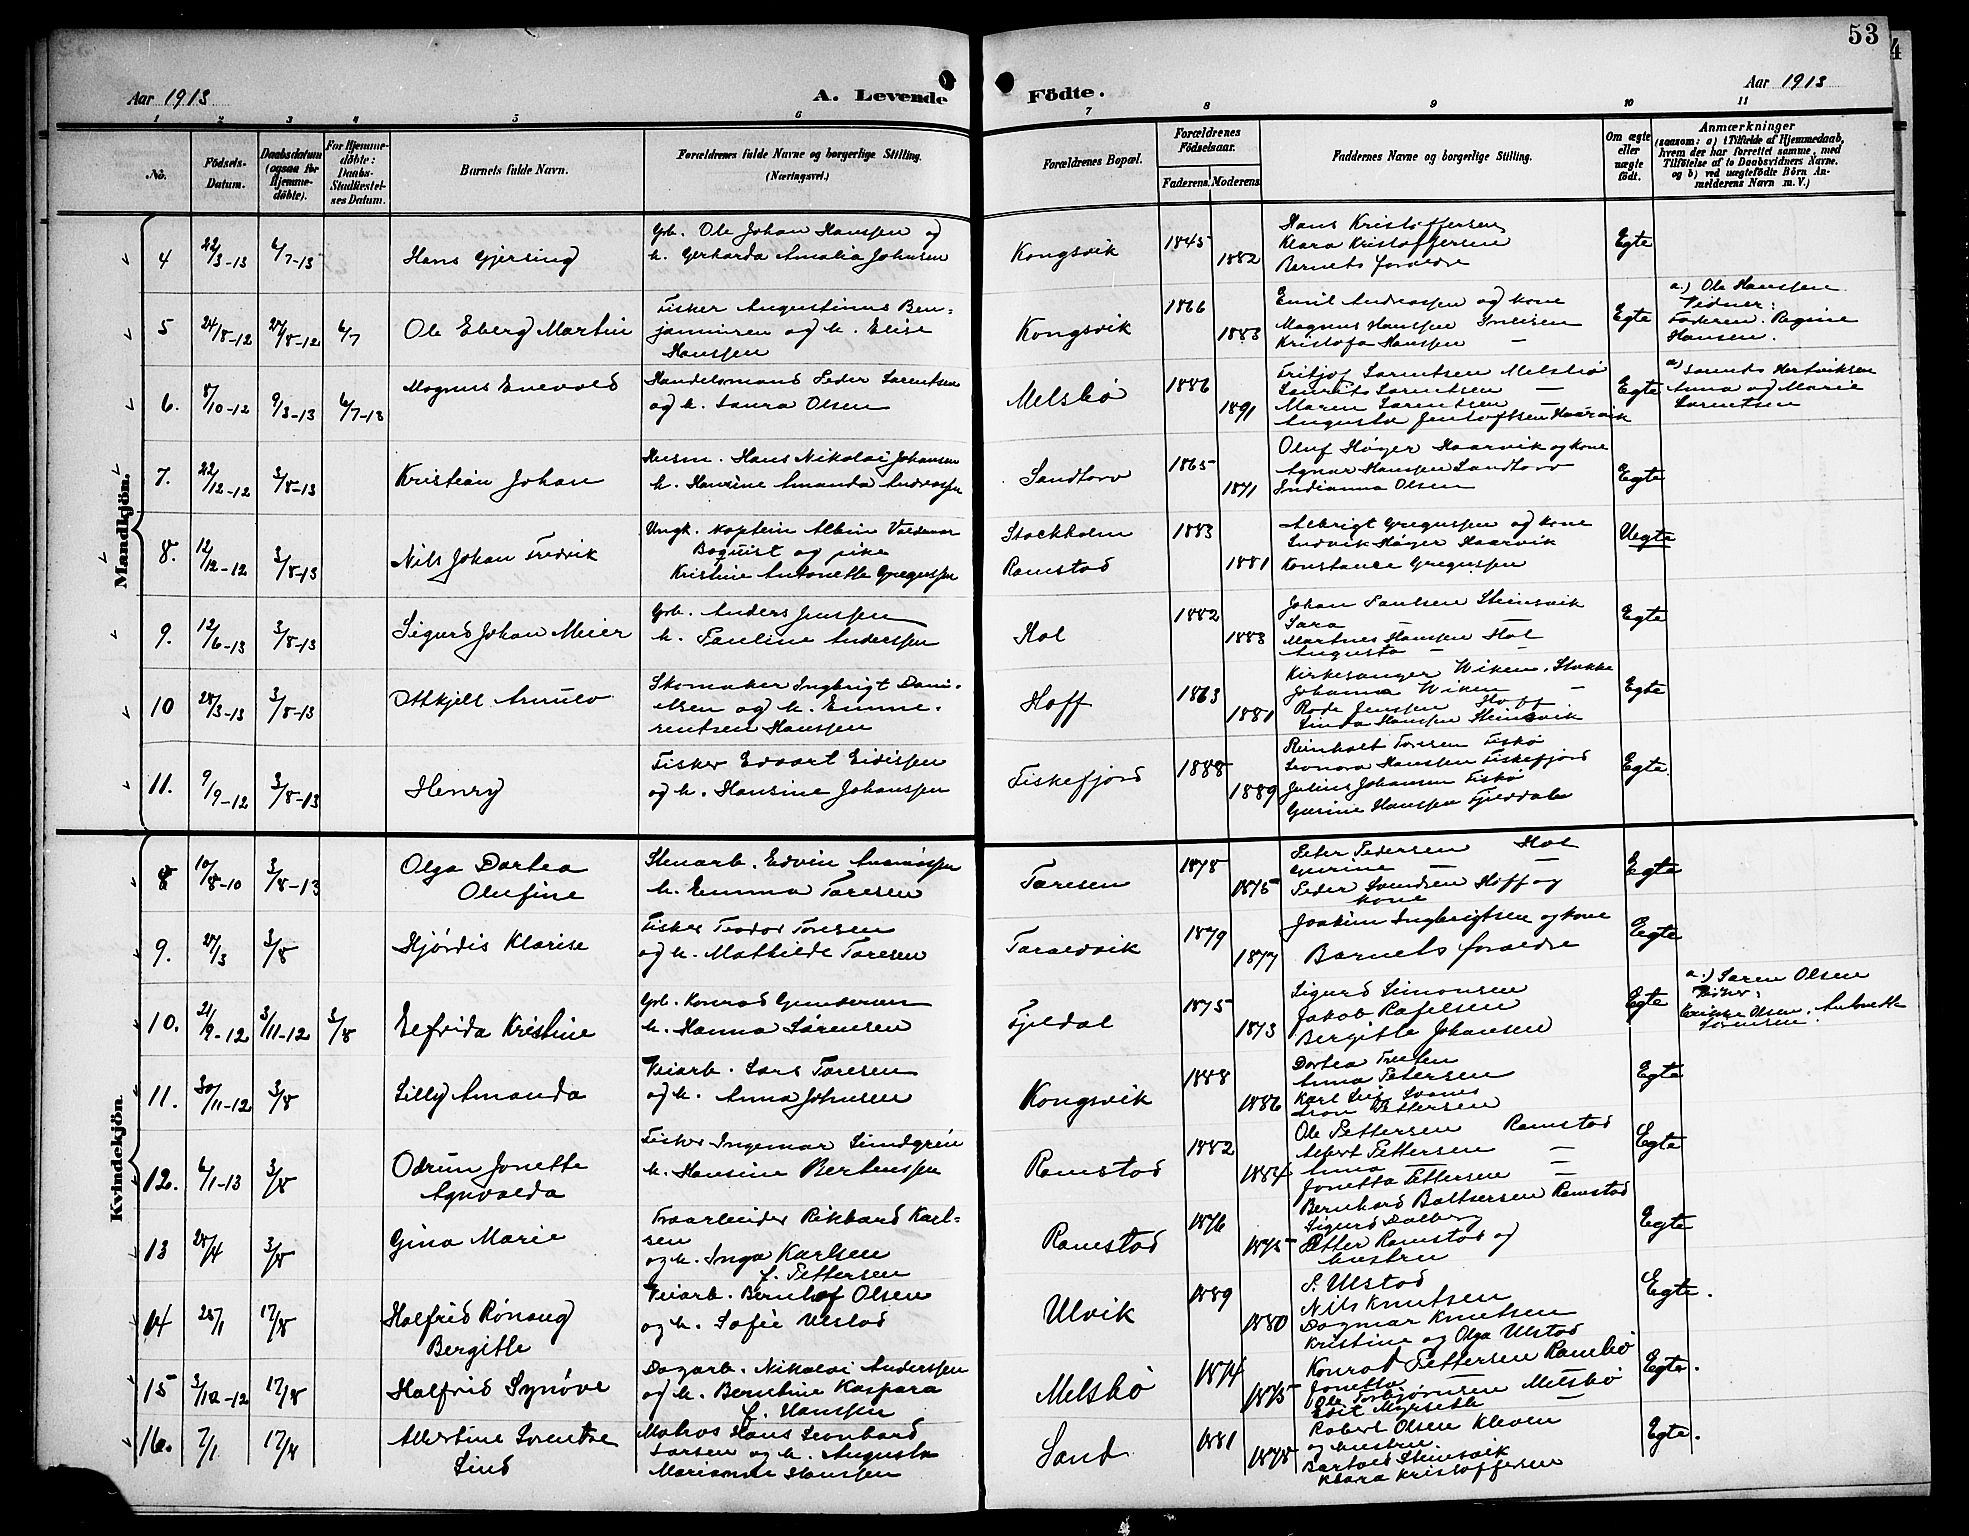 53
4
Aar 1913
A. Levende
Födte.
Aar 1913
1 2 3 4 5 6 7 8 9 10 11
No.
Födsels-
Datum.
Daabsdatum
(ogsaa for
Hjemme-
døbte).
For Hjemme-
døbte:
Daabs-
Stadfæstel-
ses Datum.
Barnets fulde Navn.
Forældrenes fulde Navne og borgerlige Stilling.
(Næringsvei.)
Forældrenes Bopæl.
Forældrenes
Fødselsaar.
Faderens. Moderens.
Faddernes Navne og borgerlige Stilling.
Om ægte
eller
uægte
født.
Anmærkninger
(saasom: a) i Tilfælde af Hjemmedaab,
hvem der har forrettet samme, med
Tilføielse af to Daabsvidners Navne.
og b) ved uægtefødte Børn An-
melderens Navn m. V.)
Mandkjön.
4 22/3-13 6/7-13 Hans Gjersing
Grb. Ole Johan Hanssen og
h. Gerharda Amalia Johnsen
Kongsvik 1845 1882
Hans Kristoffersen
Klara Kristoffersen
Barnets forældre
Egte
5 24/8-12 27/8-12 6/7 Ole Eberg Martin
Fisker Augustinus Ben-
jaminsen og h. Elise
Hanssen
Kongsvik 1866 1883
Emil Andreassen og kone
Magnus Hanssen
Kristofa Hanssen —
Egte
a.) Ole Hanssen
Vidner:
Faderen. Regine
Hansen.
6. 8/10-12 9/3-13 6/7-13 Magnus Enevald
Handelsmand Peder Lorentsen
og h. Laura Olsen
Melsbø 1886 1891
Fritjof Lorentsen Melsbø
Laurits Lorentsen —
Maren Lorentsen —
Augusta Jentoftsen Haarvik
Egte
a) Hertviksen
Anna og Marie
Lorentsen
7. 22/12-12 3/8-13 Kristian Johan
Husm. Hans Nikolai Johansen
h. Hansine Amanda Andreassen
Sandtorv 1865 1871
Oluf Høger Haarvik og kone
Agnar Hanssen Sandtorv
Indianna Olsen
Egte
8. 12/12-12 3/8-13 Nils Johan Fredrik
Ungk. Kaptein Albin Valdemar
Boquist og pike
Kristine Antonette Gregussen
Stockholm
Ramstad
1883 1881
Albrigt Gregussen og kone
Ludvik Høger Haarvik
Konstance Gregussen
Uegte
9. 12/6-13 3/8-13 Sigurd Johan Meier
Grb. Anders Jenssen
h. Pauline Anderssen
Hol 1882 1883
Johan Paulsen Steinsvik
Sara —
Martnes Hanssen Hol
Augusta —
Egte
10 28/3-13 3/8-13 Arnulv
Skomaker Ingbrigt Dani-
elsen og h. Emme-
rentsen Hanssen
Hoff 1863 1881
Kirkesanger Wiken, Stokke
Johanna Wiken —
Rode Jenssen Hoff
Linda Hanssen Steinsvik
Egte
11. 9/9-12 3/8-13 Henry
Fisker Edvart Eidissen
og h. Hansine Johanssen
Fiskefjord 1888 1889
Reinholt Toresen Fiskø
Leonora Hanssen Fiskefjord
Julius Johansen Fiskø
Gurine Hanssen Fjelddal
Egte.
Kvindekjön.
8 10/8-10 3/8-13 Olga Dortea
Olufine
Stenarb. Edvin Asmussen
h. Emma Toresen
Toresen 1878 1875
Peter Pedersen Hol
Gurine — —
Peder Svendsen Hoff og
kone
Egte
9. 27/3 3/8 Hjørdis Klarise
Fisker Teodor Toresen
og h. Mathilde Toresen
Taraldvik 1879 1877
Joakim Ingbrigtsen og kone
Barnets forældre
Egte
10. 21/9-12 3/11-12 3/8 Elfrida Kristine
Grb. Konrad Gundersen
h. Hanna Sørensen
Fjeldal 1875 1873
Sigurd Simonsen
Jakob Rafelsen
Bergitte Johansen
Egte
a.) Søren Olsen
Vidner:
Olsen. Antonette
Sørensen.
11. 30/11-12 3/8 Lilly Amanda
Veiarb. Lars Toresen
og h. Anna Johnsen
Kongsvik 1888 1886
Dortea
Anna Petersen
Karl
Pettersen
Egte
12. 6/1-13 3/8 Odrun Jonette
Agnvalda
Fisker Ingemar Lundgren
h. Hansine Berhenssen
Ramstad 1882 1884
Ole Pettersen Ramstad
Albert Pettersen —
Anna — —
Jonetta Pettersen —
Bernhard Baltsersen Ramstad
Egte
13 28/4 3/8 Gina Marie
Traarbeider Rikhard Karl-
sen
og h. Inga Karlsen
f. Pettersen
Ramstad 1876 1875
Sigurd Dalberg
Petter Ramstad og
hustru
Egte
14 28/1 17/8 Halfrid Rønaug
Bergitte
Veiarb. Bernhof Olsen
og h. Sofie Ulstad
Ulvik 1889 1880
P. Ulstad
Nils Knutsen
Dagmar Knutsen
Kristine og Olga Ulstad
Egte.
15 3/12-12 17/8 Halfrid Synøve
Dagarb. Nikolai Anderssen
og h. Berntine Kaspara
f. Hanssen
Melsbø 1874 1875
Konrad Pettersen Rambø
Jonetta —
Ole Torbjørnsen Melsbø
Edit Myrseth —
Egte.
16. 7/1 17/8 Albertine Lorentse
Lind
Matros Hans Leonhard
Larsen og h. Augusta
Marianne Hanssen
Sand 1881 1878
Robert Olsen Kleven
og hustru.
Bartold Steinsvik
Klara Kristoffersen
Egte.